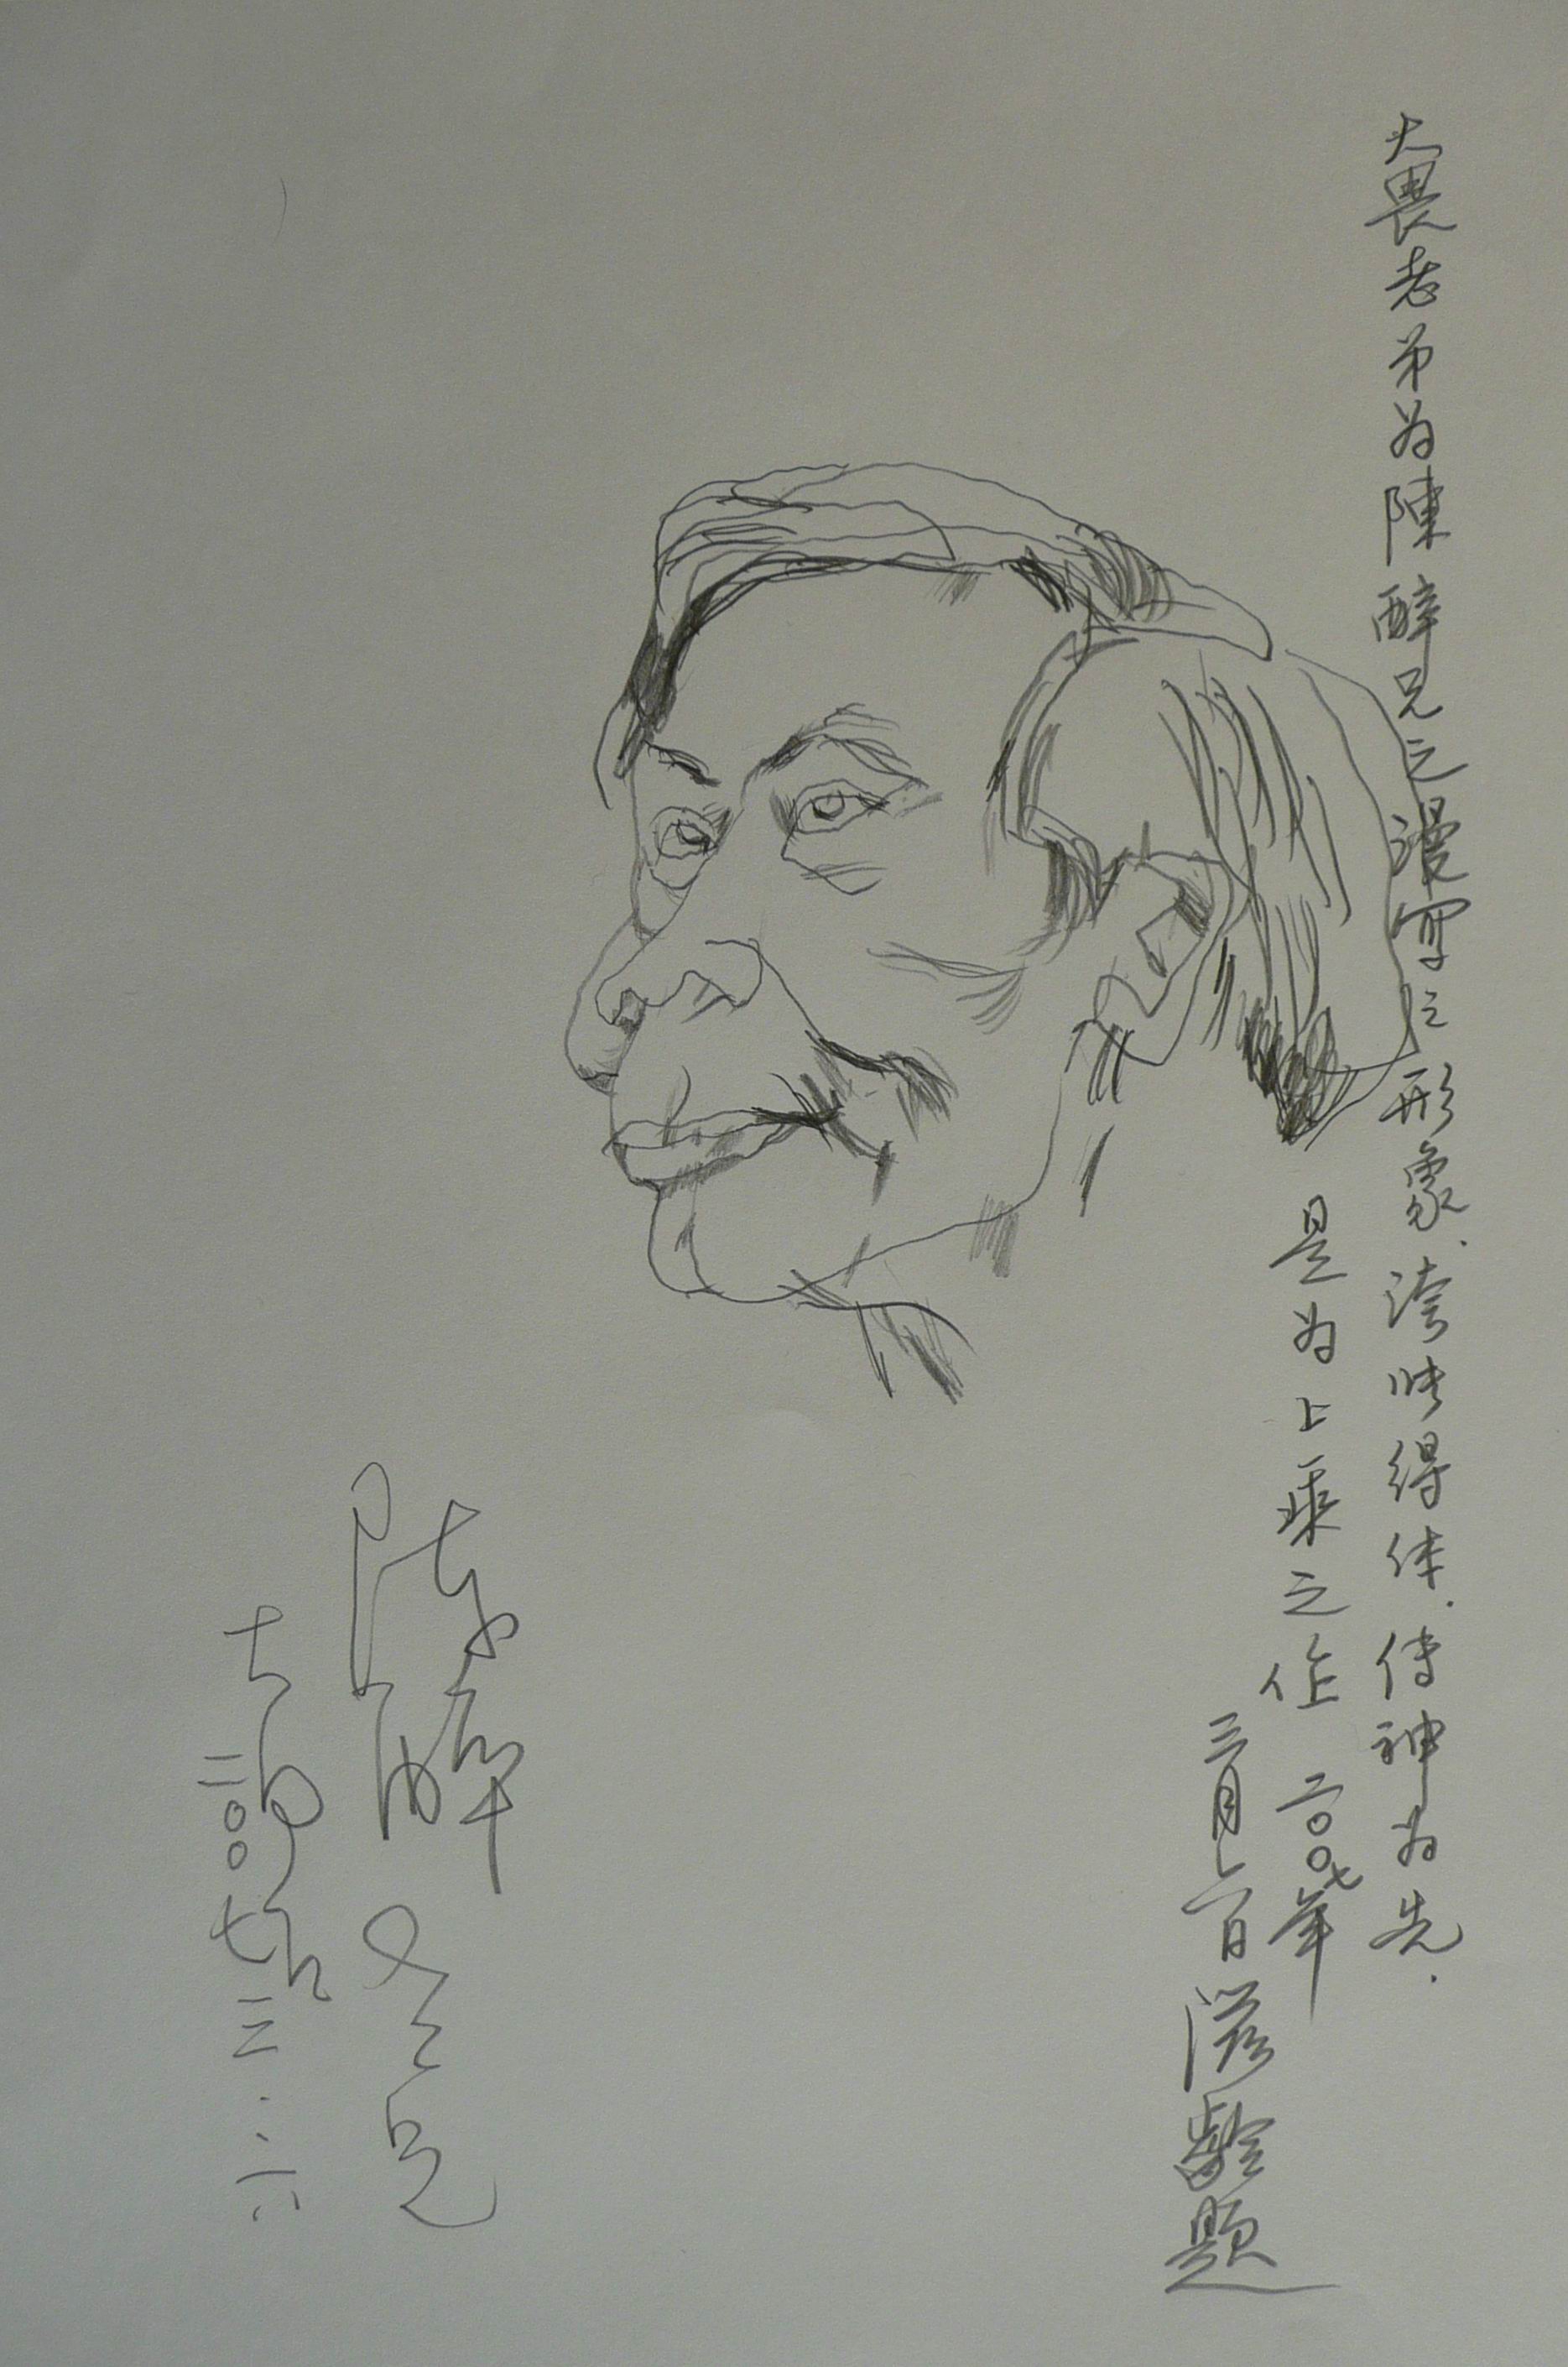 大畏老弟为陳醉兄之漫写之形象.誇张得体.传神为先.
是为上乘之作 二〇〇七年
三月六日 滋齡題
陈醉兄
大畏
二〇〇七 三.六